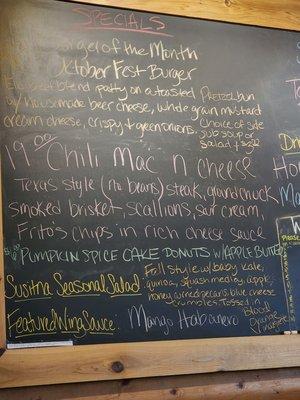 SPECIALS
Burger of the Month
Oktober Fest Burger
blend patty on a toasted Pretzel bun
w/ housemade beer cheese, whole grain mustard
cream cheese, crispy + green onions.
Choice of side
sub soup or
salad +
19.00 Chili Mac n cheese
Texas style (no beans) steak, ground chuck
smoked brisket, scallions, sour cream,
Fritos chips in rich cheese sauce
PUMPKIN SPICE CAKE DONUTS W/ APPLE BUTTER
Susitna Seasonal Salad
Fall style w/ baby kale,
quinoa, squash medley, apple,
honey, cured pecans, blue cheese
crumbles. Tossed in
Blood
Orange
Featured Wing Sauce.
Mango Habanero